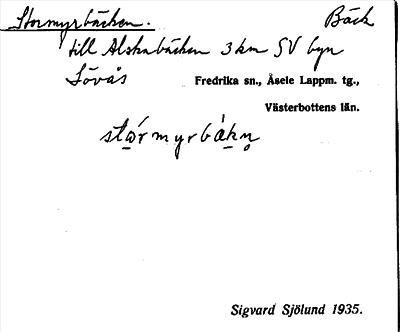 Stormyrbäcken. Bäck
till Alskabäcken 3 km SV byn
Lövås Fredrika sn., Åsele Lappm. tg.,
Västerbottens län.
Sigvard Sjölund 1935.